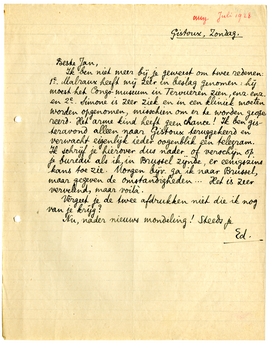 Juli 1938
Gistoux, Zondag.
Beste Jan,
Ik ben niet meer bij je geweest om twee redenen:
1º. Malraux heeft mij zeer in beslag genomen: hij
moest het Congo-museum in Tervueren zien, enz. enz.
en 2º. Simone is zeer ziek en in een kliniek moeten
worden opgenomen, misschien om er te worden geope-
reerd. Het arme kind heeft geen chance! Ik ben gis-
teravond alleen naar Gistoux teruggekeerd en
verwacht eigenlijk ieder oogenblik een telegram.
Ik schrijf je hierover dus nader of verschijn op
je bureau als ik, in Brussel zijnde, er eenigszins
kans toe zie. Morgen bijv. ga ik naar Brussel,
maar gegeven de omstandigheden... Het is zeer
vervelend, maar voilà.
Vergeet je de twee afdrukken niet die ik nog
van je krijg?
Nu, nader nieuws mondeling! Steeds je
Ed.